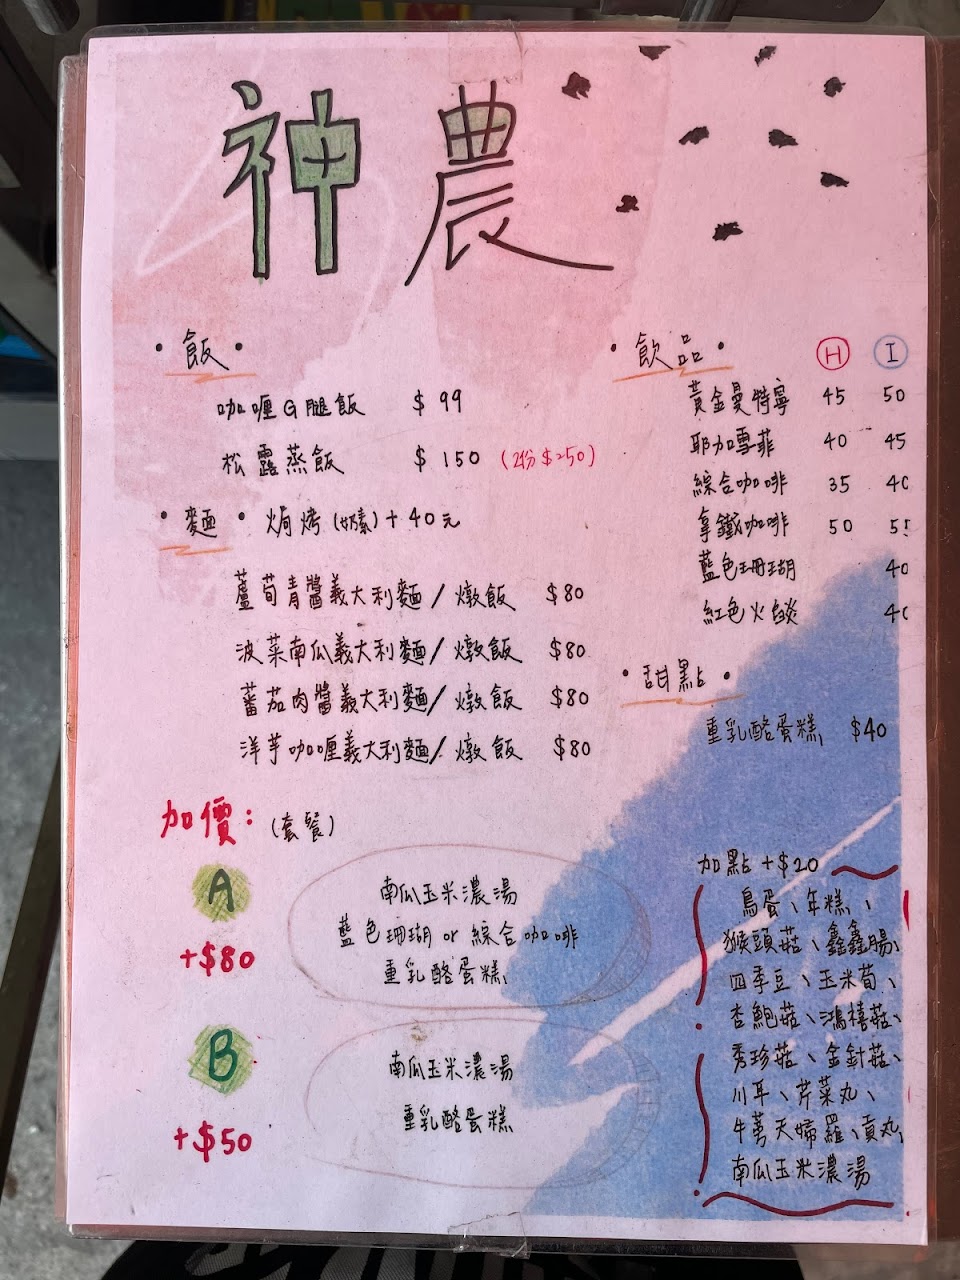 神農
•飯•
咖喱G腿飯 $99
松露蒸飯 $150 (2份$250)
•麵• 焗烤(奶素)+40元
蘆筍青醬義大利麵/燉飯 $80
波菜南瓜義大利麵/燉飯 $80
蕃茄肉醬義大利麵/燉飯 $80
洋芋咖喱義大利麵/燉飯 $80
加價:(套餐)
A
+$80
南瓜玉米濃湯
藍色珊瑚 or 綜合咖啡
重乳酪蛋糕
B
+$50
南瓜玉米濃湯
重乳酪蛋糕
•飲品• H I
黃金曼特寧 45 50
耶加雪菲 40 45
綜合咖啡 35 40
拿鐵咖啡 50 55
藍色珊瑚 40
紅色火焰 40
•甜點•
重乳酪蛋糕 $40
加點+$20
鳥蛋、年糕、
猴頭菇、鑫鑫腸、
四季豆、玉米筍、
杏鮑菇、鴻禧菇、
秀珍菇、金針菇、
川耳、芹菜丸、
牛蒡天婦羅、貢丸、
南瓜玉米濃湯